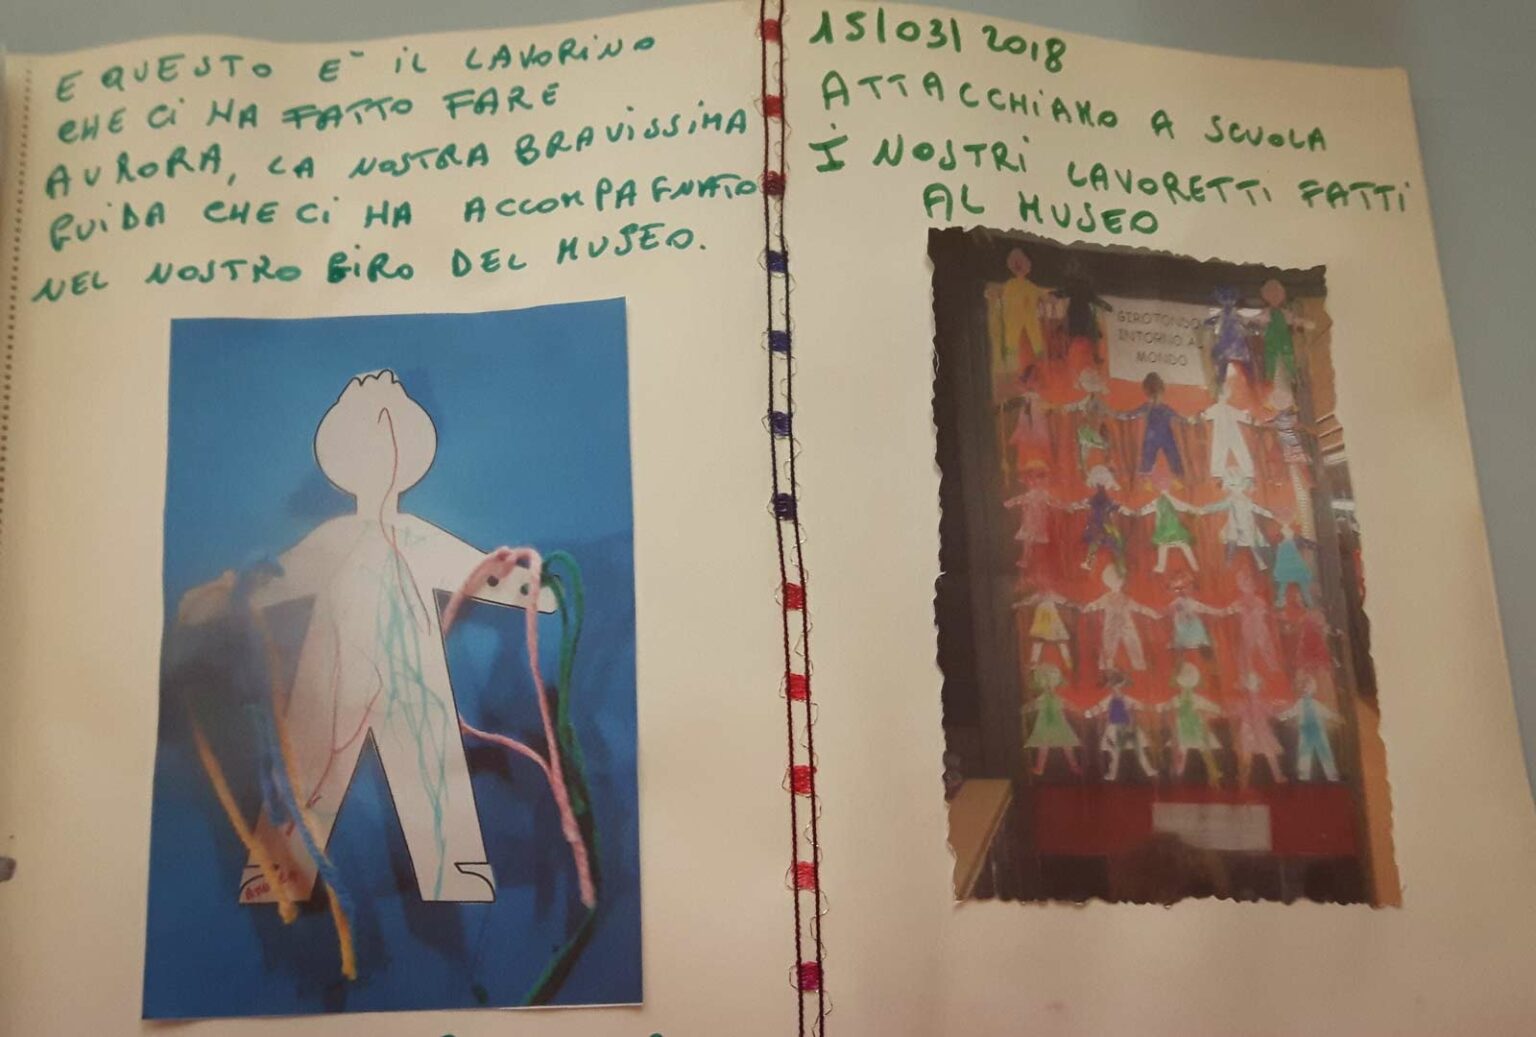 E QUESTO E' IL LAVORINO
CHE CI HA FATTO FARE
AURORA, LA NOSTRA BRAVISSIMA
GUIDA CHE CI HA ACCOMPAGNATO
NEL NOSTRO GIRO DEL MUSEO.
15/03/2018
ATTACCHIAMO A SCUOLA
I NOSTRI LAVORETTI FATTI
AL MUSEO
GIROTONDO
INTORNO AL
MONDO